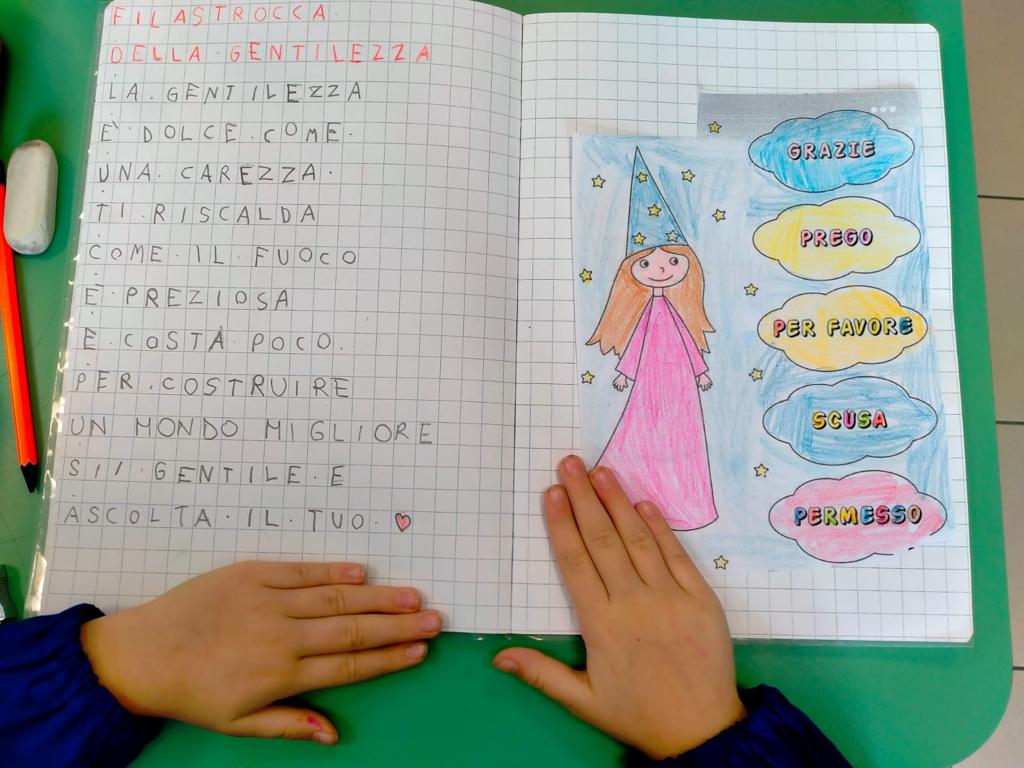 FILASTROCCA
DELLA GENTILEZZA
LA GENTILEZZA
È DOLCE COME
UNA CAREZZA
TI RISCALDA
COME IL FUOCO
È PREZIOSA
E COSTA POCO
PER COSTRUIRE
UN MONDO MIGLIORE
SII GENTILE E
ASCOLTA IL TUO ❤
GRAZIE
PREGO
PER FAVORE
SCUSA
PERMESSO